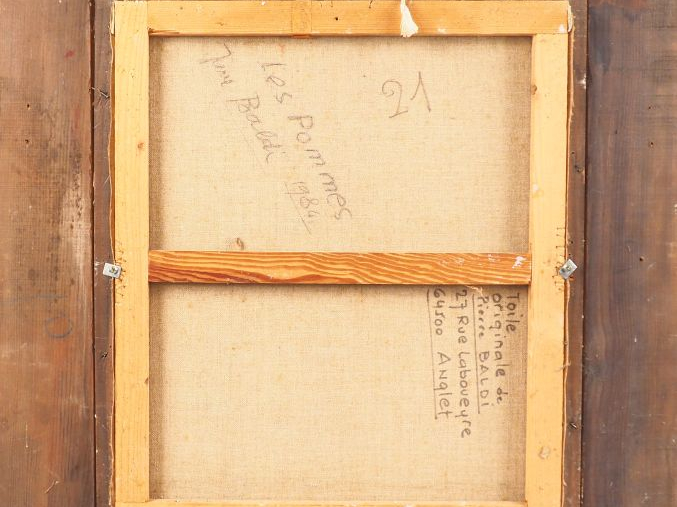 Les Pommes
Baldi 1984
21
Toile
originale de
Pierre BALDI
27 Rue Laboueyre
64500 Anglet